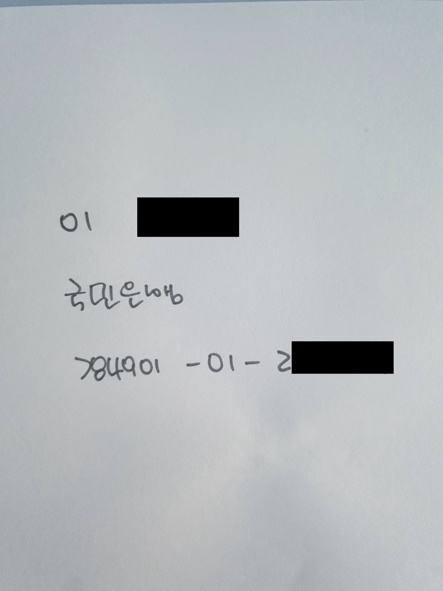 이
국민은행
784901-01-2